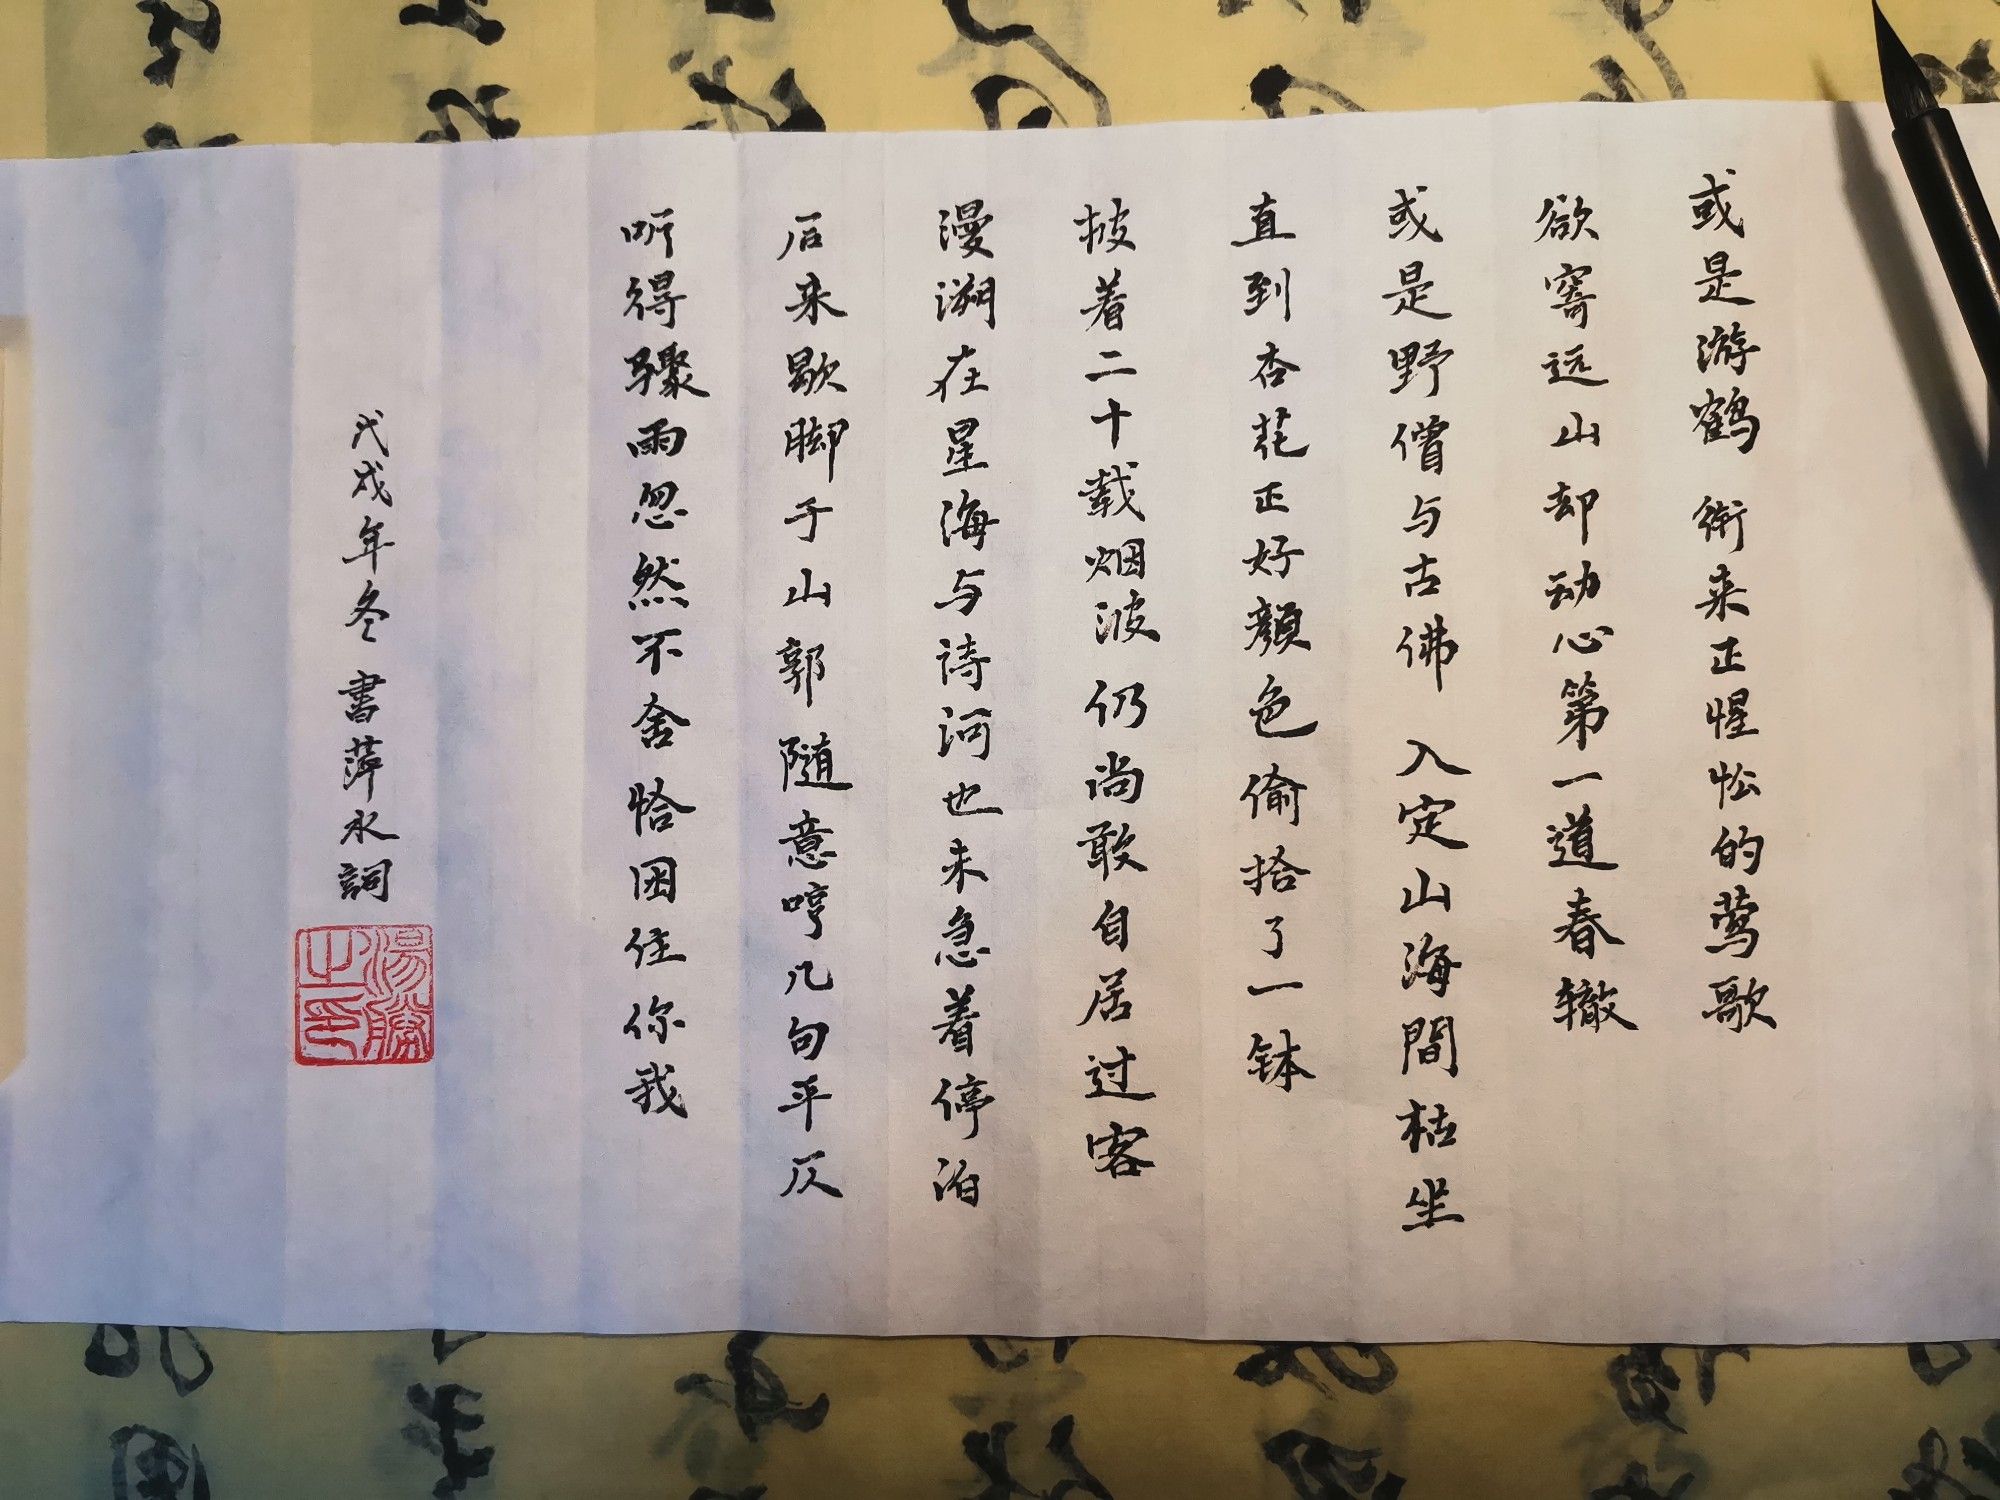 或是游鹤 衔来正惺忪的莺歌
欲寄远山却动心第一道春辙
或是野僧与古佛 入定山海間枯坐
直到杏花正好顏色偷拾了一钵
披着二十载烟波仍尚敢自居过客
漫溯在星海与诗河也未急着停泊
后来歇脚于山郭随意哼几句平仄
听得骤雨忽然不舍恰困住你我
戊戌年冬 書萍水詞
湯勝之印